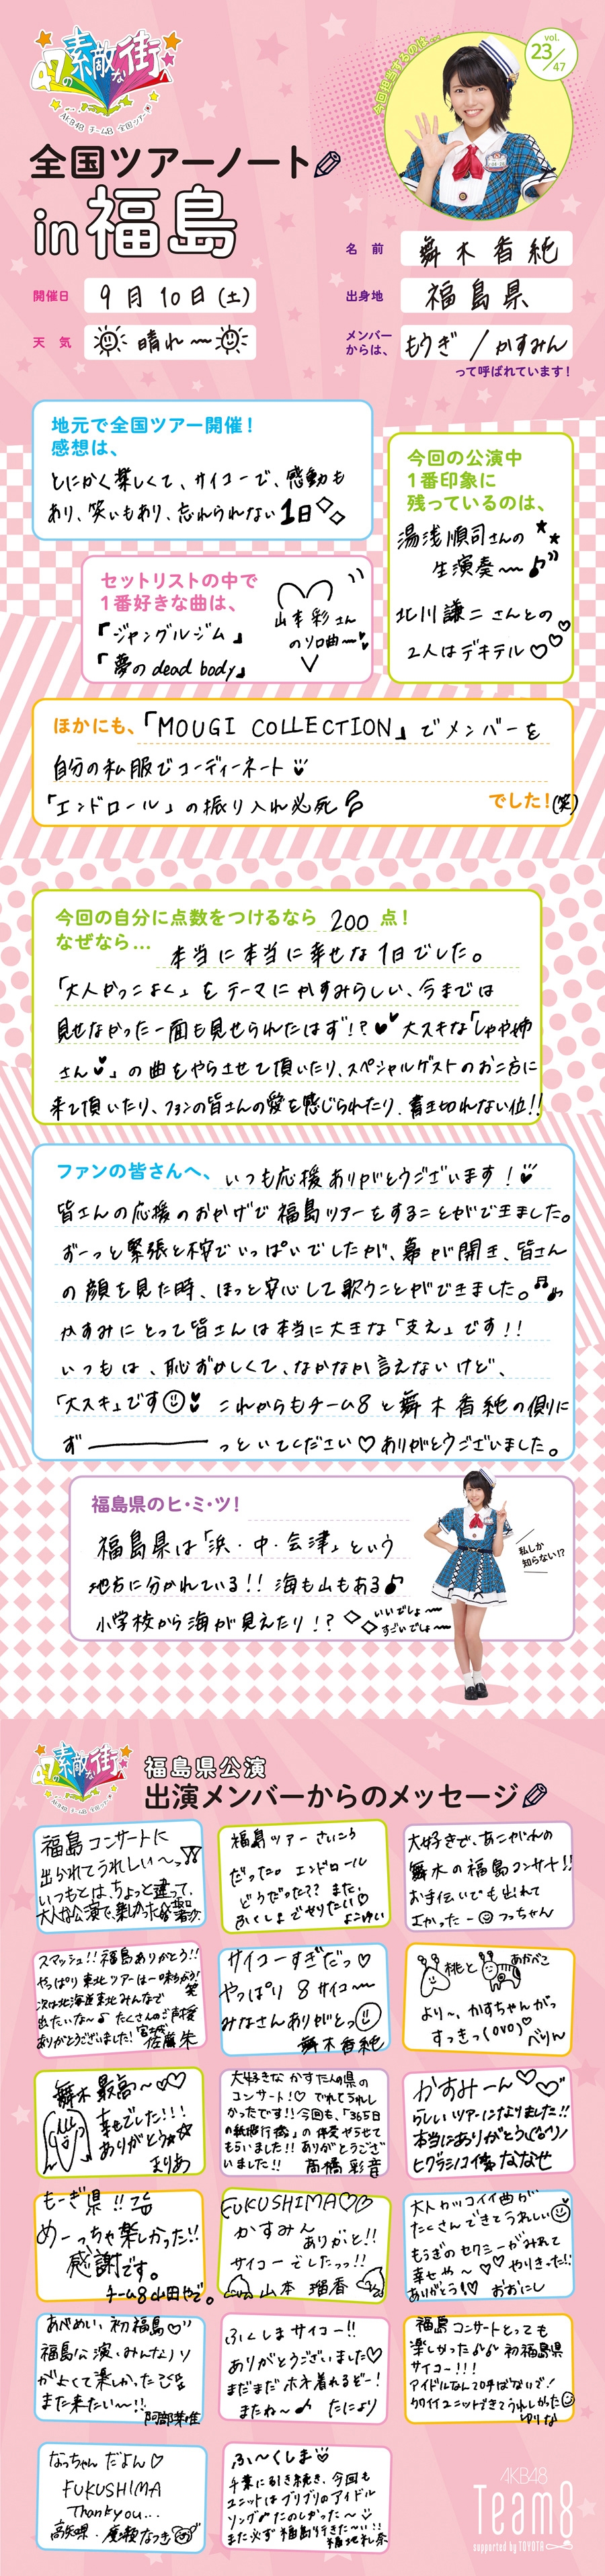 47の素敵な街へ
AKB48 チーム8 全国ツアー
今回担当するのは…
vol.
23/47
全国ツアーノート
in 福島
開催日 9月10日(土)
天気 晴れ〜
名前 舞木香純
出身地 福島県
メンバーからは、 もうぎ/かすみん
って呼ばれています!
地元で全国ツアー開催!
感想は、
とにかく楽しくて、サイコーで、感動も
あり、笑いもあり、忘れられない1日
今回の公演中
1番印象に
残っているのは、
湯浅順司さんの
生演奏〜♪
北川謙二さんとの
2人はデキテル♡♡♡
セットリストの中で
1番好きな曲は、
「ジャングルジム」
「夢のdead body」
山本彩さん
のソロ曲〜
ほかにも、「MOUGI COLLECTION」でメンバーを
自分の私服でコーディーネート
「エンドロール」の振り入れ必死
でした!(笑)
今回の自分に点数をつけるなら 200 点!
なぜなら… 本当に本当に幸せな1日でした。
「大人かっこよく」をテーマにかすみらしい、今までは
見せなかった一面も見せられたはず!?♥♥ 大スキな「しゃや姉
さん♥」の曲をやらさせて頂いたり、スペシャルゲストのお二方に
来て頂いたり、ファンの皆さんの愛を感じられたり、書き切れない位!!
ファンの皆さんへ、いつも応援ありがとうございます!
皆さんの応援のおかげで福島ツアーをすることができました。
ずーっと緊張と不安でいっぱいでしたが、幕が開き、皆さん
の顔を見た時、ほっと安心して歌うことができました。♬♪
かすみにとって皆さんは本当に大きな「支え」です!!
いつもは、恥ずかしくて、なかなか言えないけど、
「大スキ」です これからもチーム8と舞木香純の側に
ず――――っといてください♡ありがとうございました。
福島県のヒ・ミ・ツ!
福島県は「浜・中・会津」という
地方に分かれている!! 海も山もある♪
小学校から海が見えたり!?
いいでしょ〜
すごいでしょ〜
私しか
知らない!?
47の素敵な街へ
AKB48 チーム8 全国ツアー
福島県公演
出演メンバーからのメッセージ
福島コンサートに
出られてうれしい〜っ
いつもとは、ちょっと違って、
大人な公演で、楽しかった
福島ツアーさいこう
だった。エンドロール
どうだった?? また、
ふくしまでやりたい♡
よこゆい
大好きで、あこがれの
舞木の福島コンサート!!
お手伝いでも出れて
よかったー つっちゃん
スマッシュ!!福島ありがとう!!
やっぱり東北ツアーは一味ちがう!
笑
次は北海道東北みんなで
出たいな〜♪ たくさんのご声援
ありがとうございました! 宮城 佐藤朱
サイコーすぎだっ♡
やっぱり8サイコ〜
みなさんありがとっ
舞木香純
桃と あかべこ
より〜、かすちゃんがっ
すっきっ(OVO)♥
べりん
舞木最高〜♡♡
幸せでした!!!
ありがとう☆☆
まりあ
大好きなかすたんの県の
コンサート!♡ でれてうれし
かったです!!今回も、「365日
の紙飛行機」の伴奏やらせて
もらいました!! ありがとうござ
いました!! 高橋彩音
かすみーん♡♡
らしいツアーになりました!!
本当にありがとう
ヒグラシノコイ ななせ
もーぎ県!!
めーっちゃ楽しかった!!
感謝です。
チーム8 山田やで。
FUKUSHIMA♡♡
かすみん
ありがと!!
サイコーでしたっっ!!
山本瑠香
大人カッコイイ曲が
たくさんできてうれしい
もうぎのセクシーがみれて
幸せや〜♡♡ やりきった!!
ありがとう!♡ おおにし
あべめい、初福島♡
福島公演、みんなノリ
がよくて楽しかった
また来たい〜!!
阿部芽唯
ふくしまサイコー!!
ありがとうございました♡
まだまだ水着着れるぞー!
またね〜♪ たにより
福島コンサートとっても
楽しかった♪♪ 初福島県
サイコー!!!
アイドルなんて呼ばないで!
かわイイユニットできてうれしかった
ゆりな
なっちゃんだよん♡
FUKUSHIMA
Thank you...
高知県・廣瀬なつき
ふ〜くしま
千葉に引き続き、今回も
ユニットはブリブリのアイドル
ソング♪たのしかった〜
また必ず福島行きた〜い!!
福地礼奈
AKB48
Team8
supported by TOYOTA